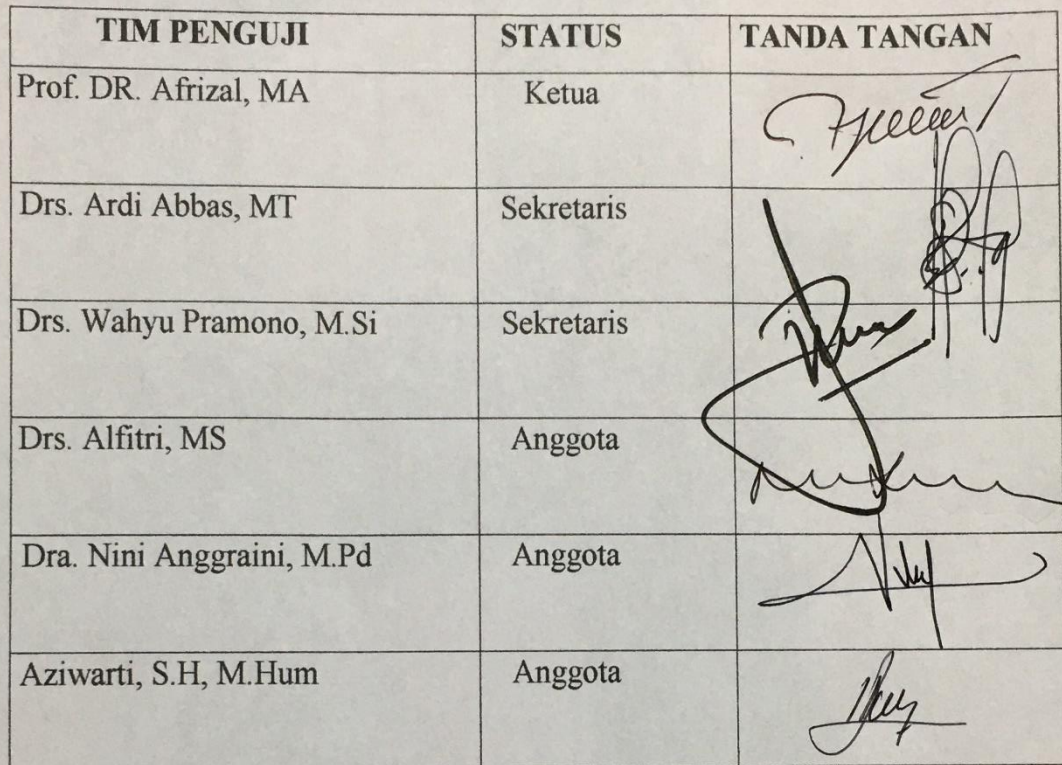 TIM PENGUJI STATUS TANDA TANGAN
Prof. DR. Afrizal, MA Ketua
Drs. Ardi Abbas, MT Sekretaris
Drs. Wahyu Pramono, M.Si Sekretaris
Drs. Alfitri, MS Anggota
Dra. Nini Anggraini, M.Pd Anggota
Aziwarti, S.H, M.Hum Anggota